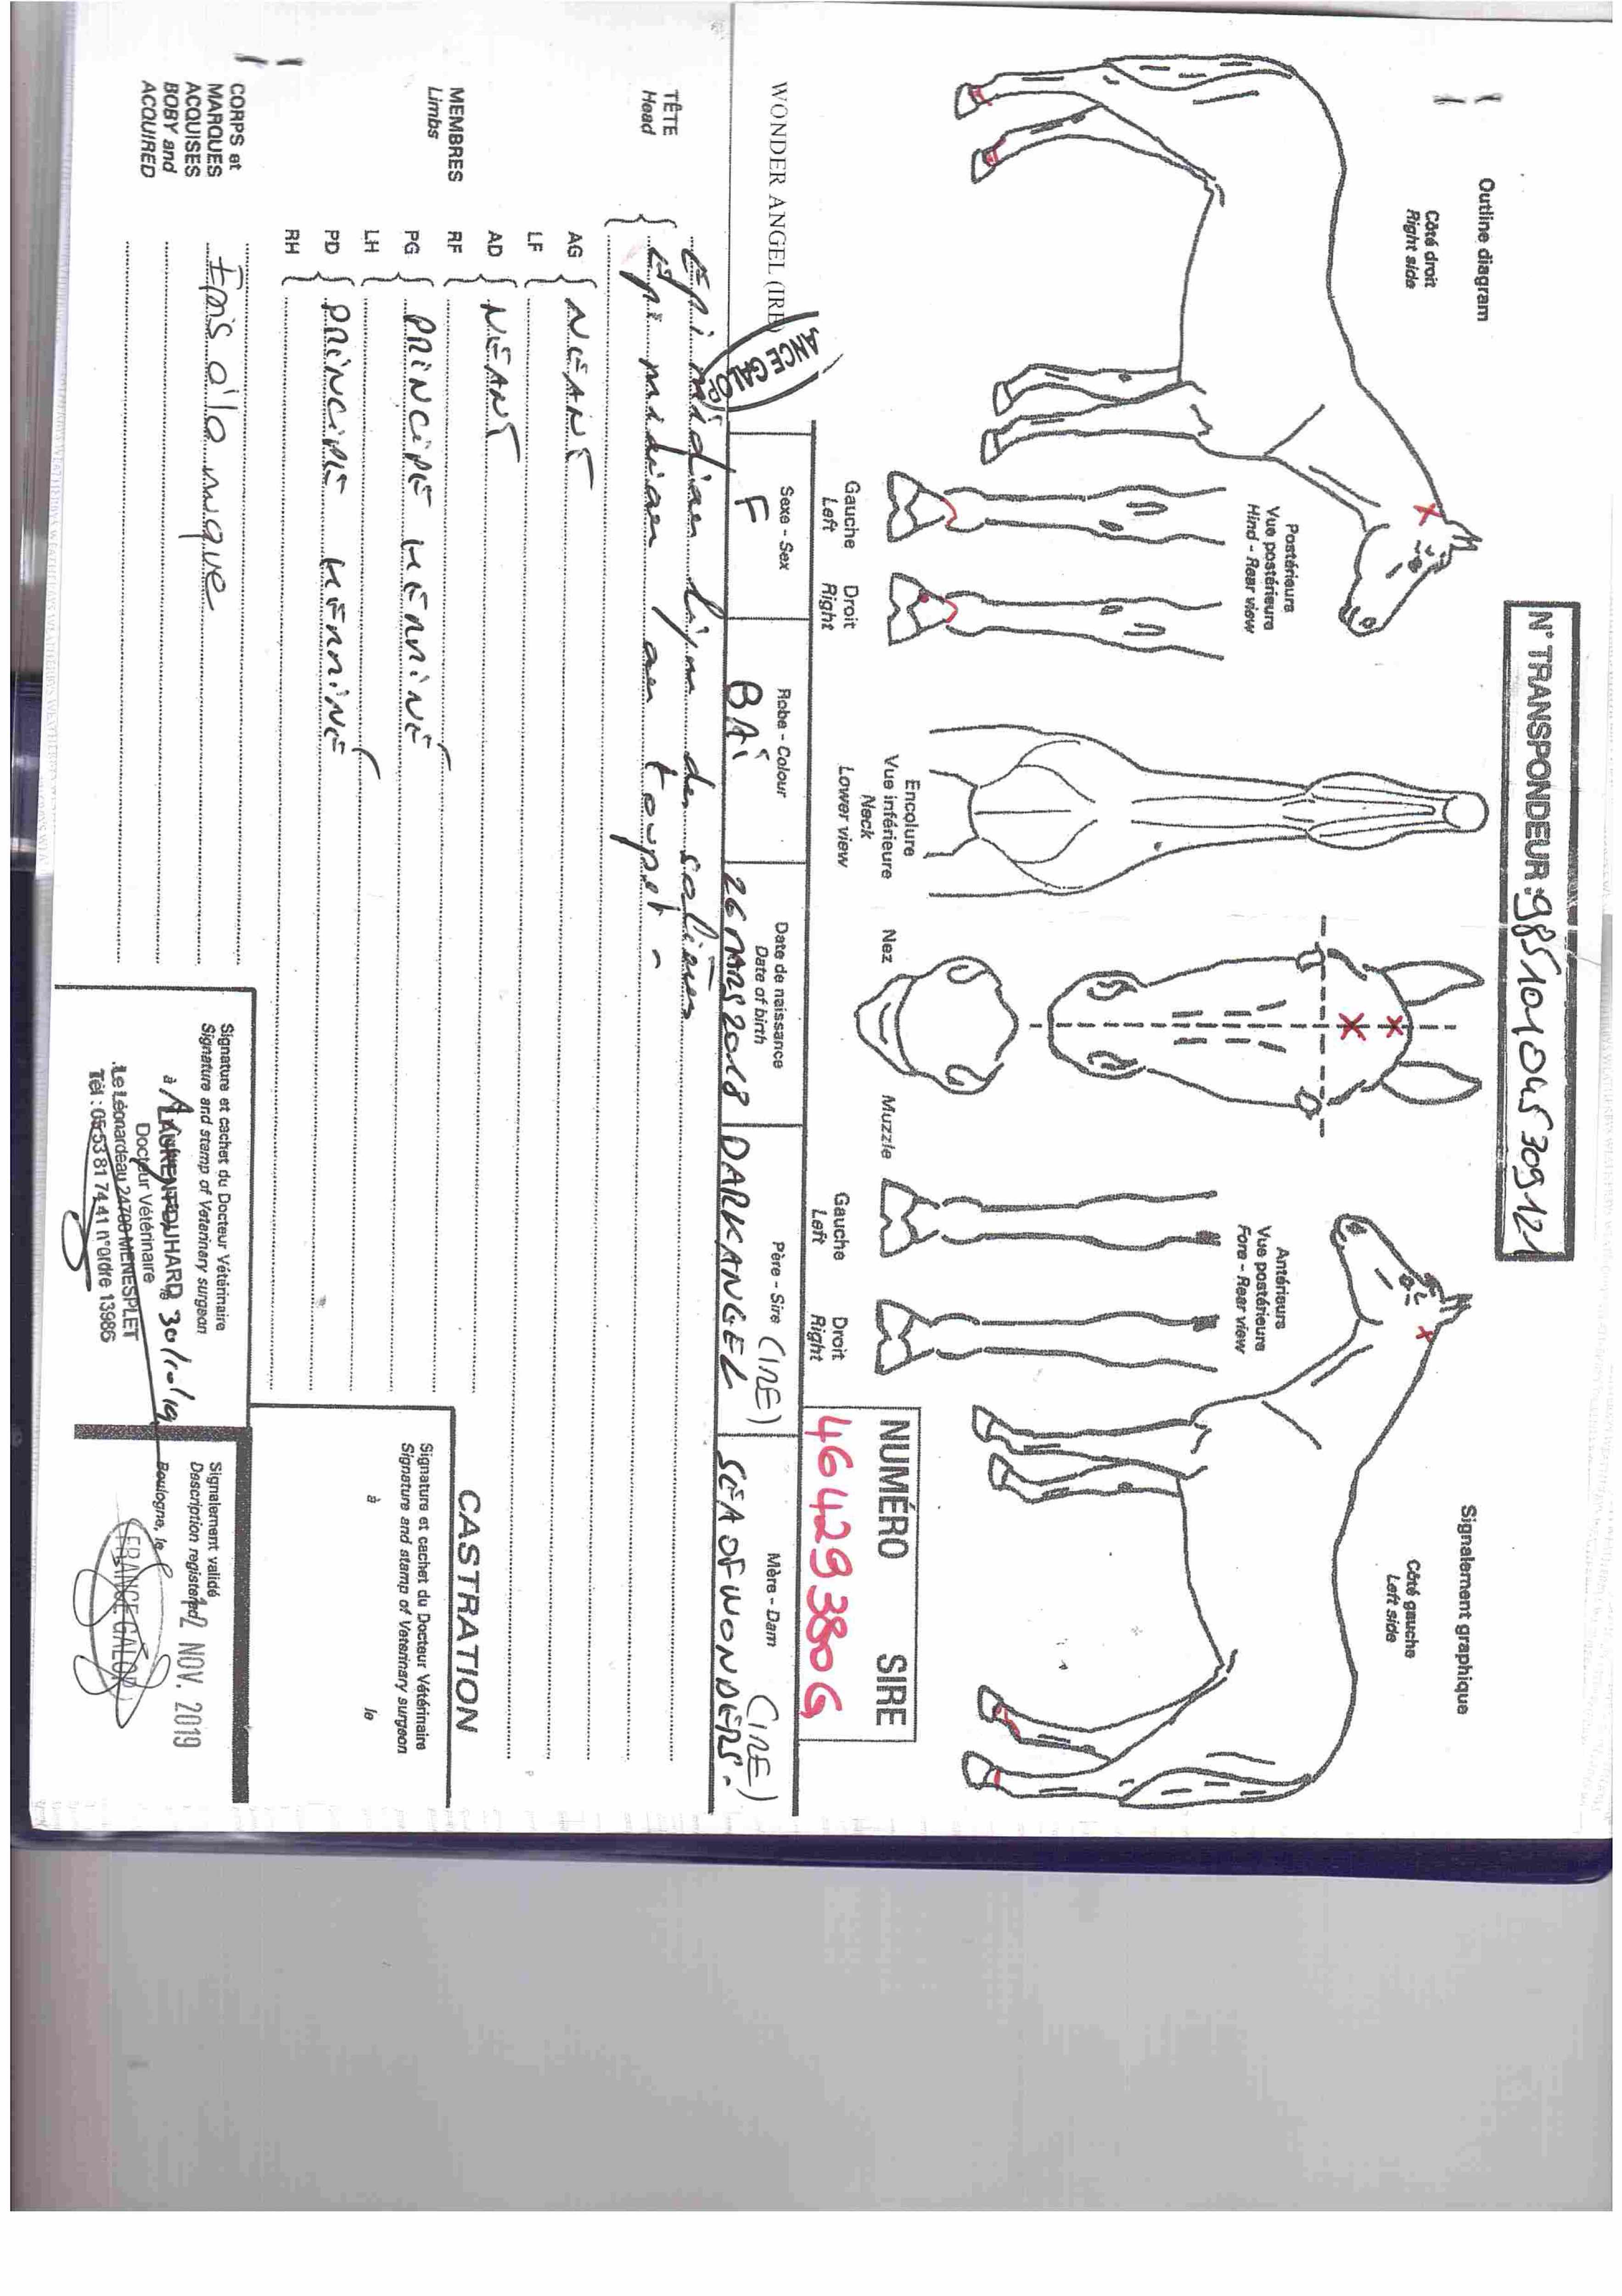 N° TRANSPONDEUR :985101045309121
Outline diagram
Signalement graphique
Côté droit
Right side
Côté gauche
Left side
Postérieurs
Vue postérieure
Hind - Rear view
Antérieurs
Vue postérieure
Fore - Rear view
Gauche
Left
Droit
Right
Encolure
Vue inférieure
Neck
Lower view
Nez
Muzzle
Gauche
Left
Droit
Right
NUMÉRO SIRE
46429380G
WONDER ANGEL (IRE)
ANCE GALOP
Sexe - Sex
F
Robe - Colour
BAI
Date de naissance
Date of birth
26 MARS 2018
Père - Sire (IRE)
DARK ANGEL
Mère - Dam (IRE)
SEA OF WONDERS.
TÊTE
Head
Epi médian ligne des salières
Epi médian au toupet -
MEMBRES
Limbs
AG
LF
NÉANT
AD
RF
NÉANT
PG
LH
PRINCIPE HERMINÉ
PD
RH
PRINCIPE HERMINÉ
CORPS et
MARQUES
ACQUISES
BOBY and
ACQUIRED
Epis à la nuque
CASTRATION
Signature et cachet du Docteur Vétérinaire
Signature and stamp of Veterinary surgeon
à le
Signature et cachet du Docteur Vétérinaire
Signature and stamp of Veterinary surgeon
à 30/10/19
Docteur Vétérinaire
Le Léonardeau 24700 MENESPLET
Tél : 05 53 81 74 41 n°ordre 13986
Signalement validé
Description registered
12 NOV. 2019
Boulogne, le
FRANCE GALOP